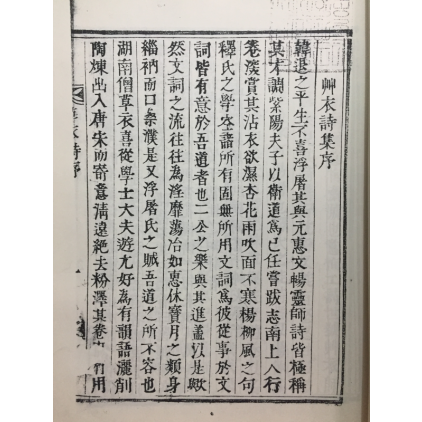 艸衣詩集序
韓退之平生不喜浮屠其與元惠文暢靈師詩皆極稱
其才調紫陽夫子以衛道爲已任嘗跋志南上人行
卷後賞其沾衣欲濕杏花雨吹面不寒楊柳風之句
釋氏之學空諸所有固無所用文爲彼從事於文
詞皆有意於吾道者也二公之樂與其進盖以是歟
然文詞之流往往為淫靡蕩冶如惠休寶月之類身
緇衲而口桑濮是又浮屠氏之賊吾道之所不容也
湖南僧草衣喜從學士大夫遊尤好為有韻語灑削
陶煉出入唐宋而寄意清遠絕去粉澤其卷
用
草衣詩序